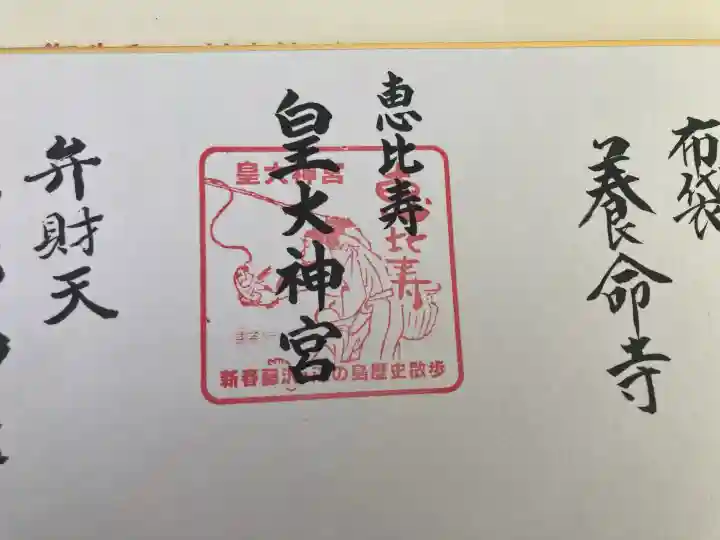 布袋
養命寺
恵比寿
皇大神宮
皇大神宮
恵比寿
新春藤沢江の島歴史散歩
弁財天